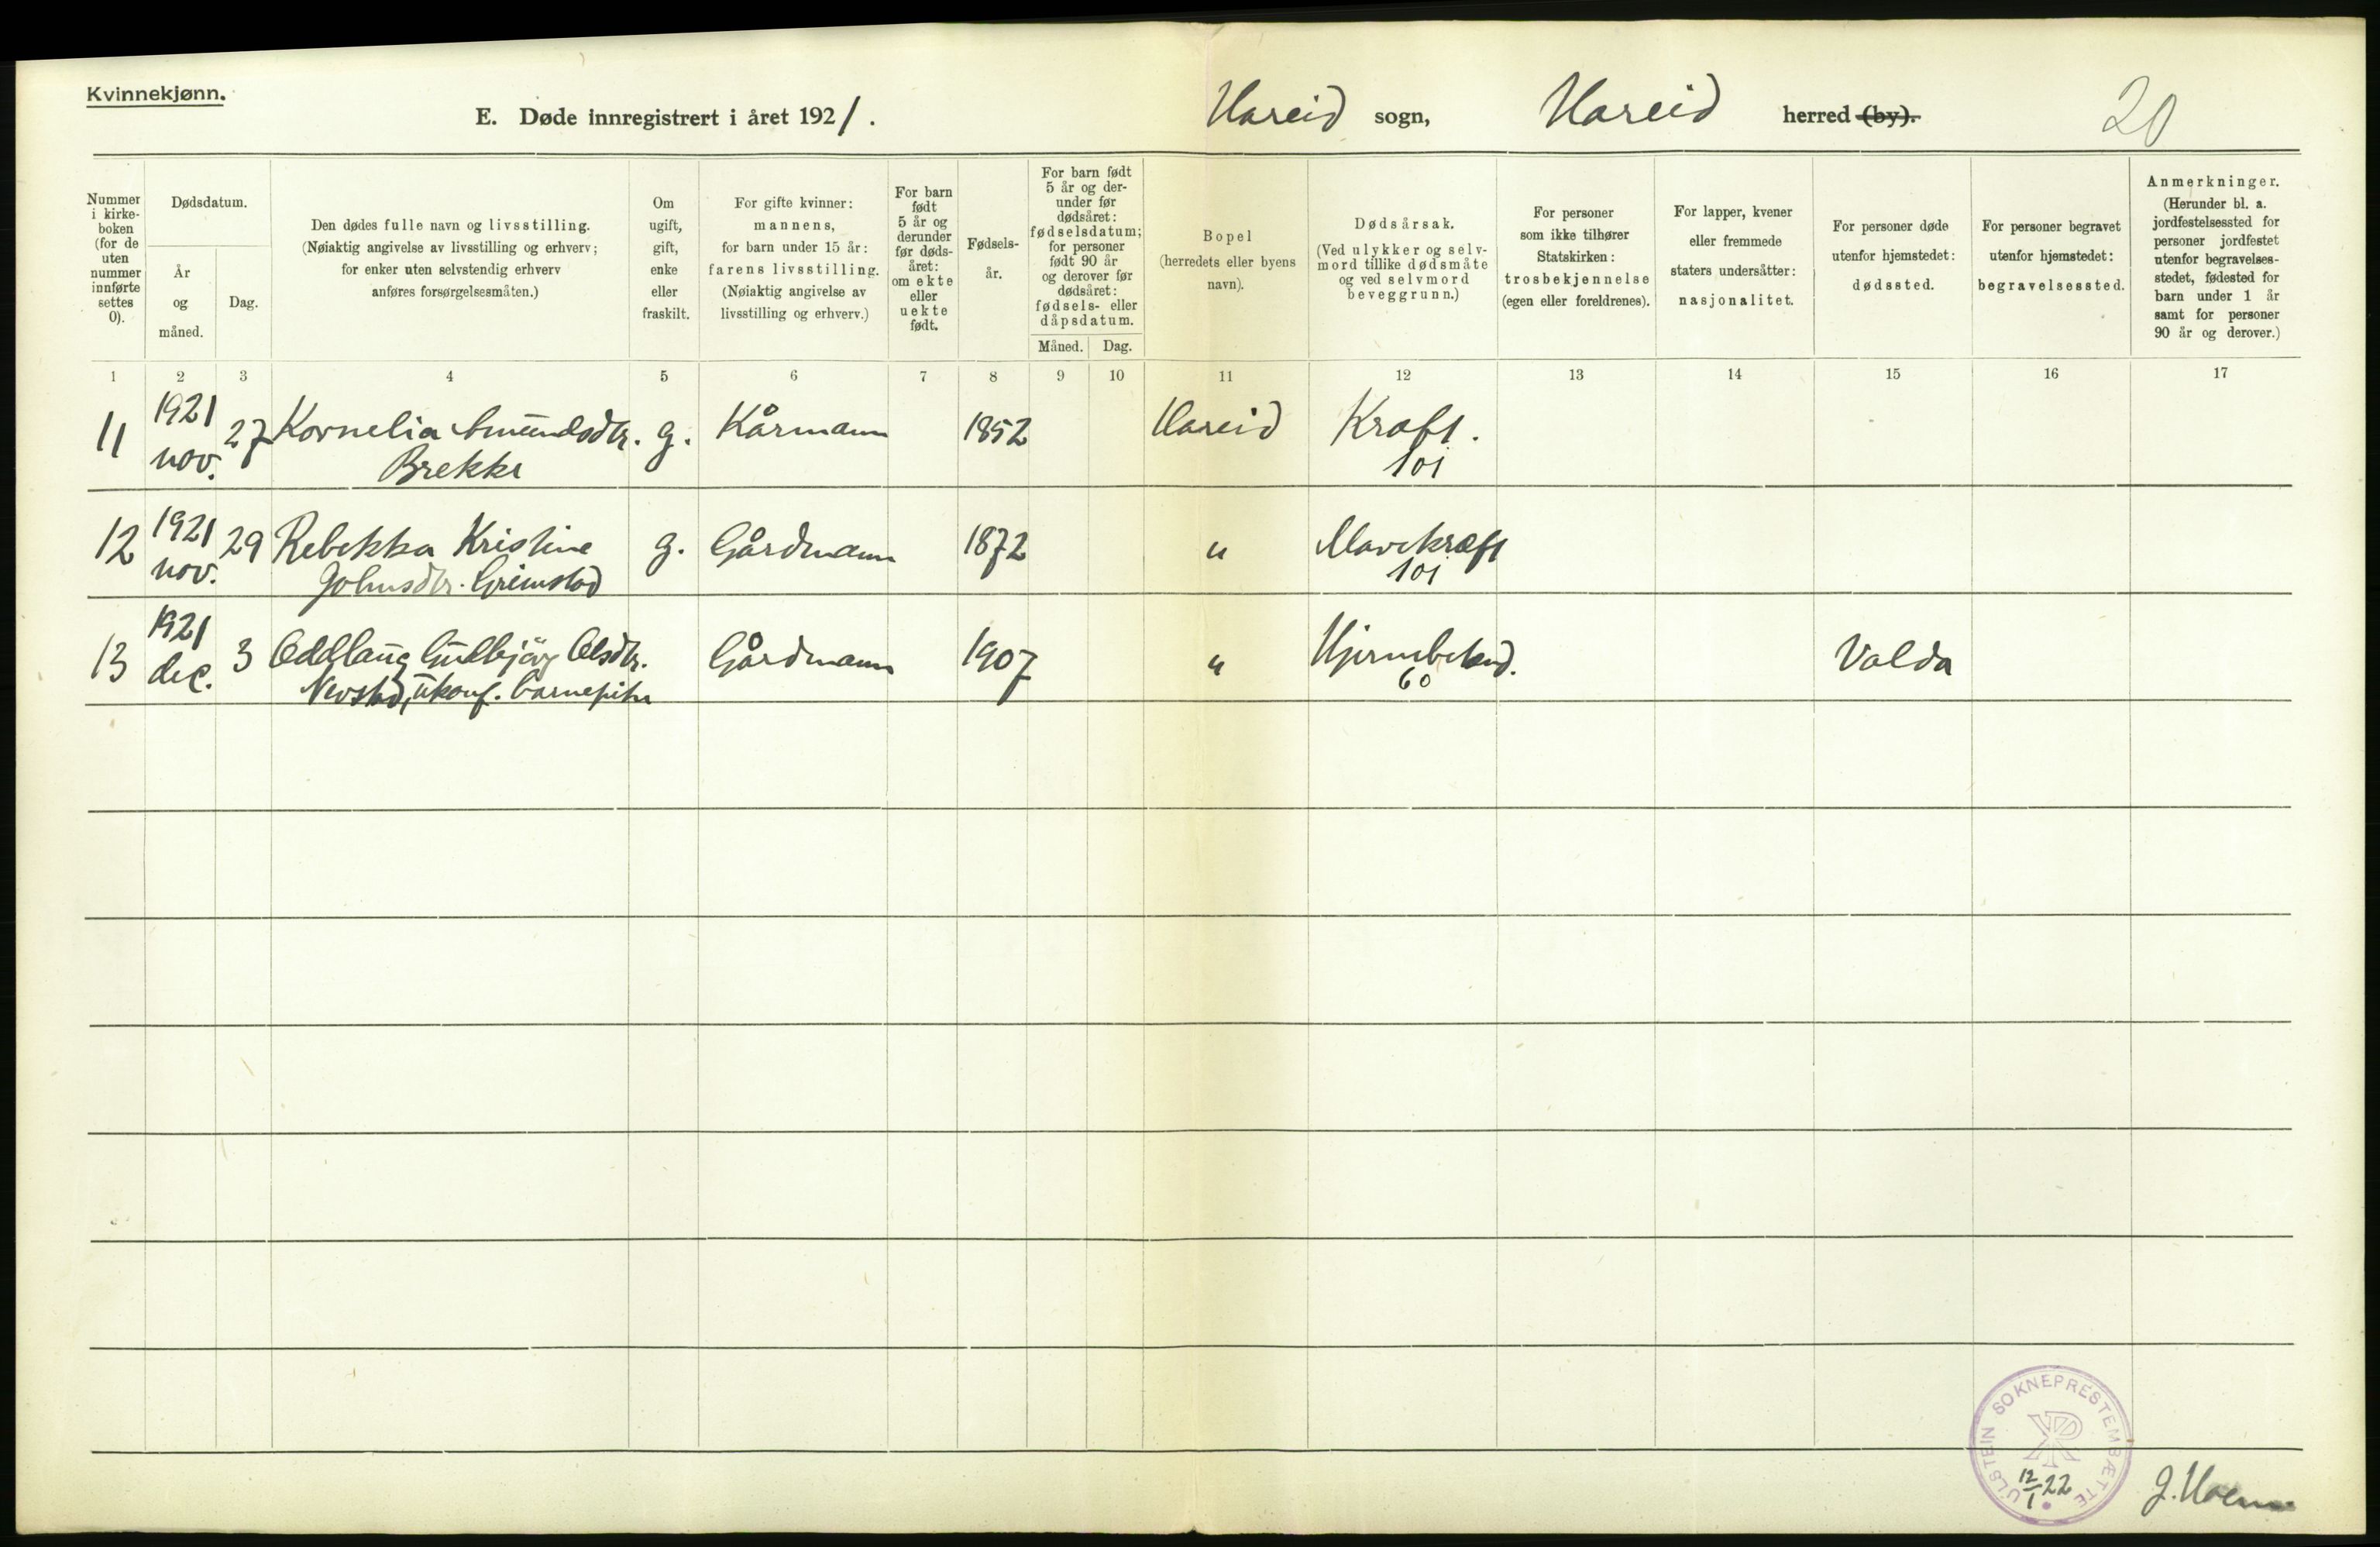 Kvinnekjønn.
E. Døde innregistrert i året 1921.
Hareid sogn, Hareid herred (by).
20
Nummer i kirke-boken (for de uten nummer innførte settes 0).
Dødsdatum.
År og måned.
Dag.
Den dødes fulle navn og livsstilling.
(Nøiaktig angivelse av livsstilling og erhverv;
for enker uten selvstendig erhverv
anføres forsørgelsesmåten.)
Om
ugift,
gift,
enke
eller
fraskilt.
For gifte kvinner:
mannens,
for barn under 15 år:
farens livsstilling.
(Nøiaktig angivelse av
livsstilling og erhverv.)
For barn
født
5 år og
derunder
før døds-
året:
om ekte
eller
uekte
født.
Fødsels-
år.
For barn født
5 år og der-
under før
dødsåret:
fødselsdatum;
for personer
født 90 år
og derover før
dødsåret:
fødsels- eller
dåpsdatum.
Måned. Dag.
Bopel
(herredets eller byens
navn).
Dødsårsak.
(Ved ulykker og selv-
mord tillike dødsmåte
og ved selvmord
beveggrunn.)
For personer
som ikke tilhører
Statskirken:
trosbekjennelse
(egen eller foreldrenes).
For lapper, kvener
eller fremmede
staters undersåtter:
nasjonalitet.
For personer døde
utenfor hjemstedet:
dødssted.
For personer begravet
utenfor hjemstedet:
begravelsessted.
Anmerkninger.
(Herunder bl. a.
jordfestelsessted for
personer jordfestet
utenfor begravelses-
stedet, fødested for
barn under 1 år
samt for personer
90 år og derover.)
1 2 3 4 5 6 7 8 9 10 11 12 13 14 15 16 17
11 1921 nov. 27 Kornelia Amundsdtr. Brekke g. Kårmann 1852 Hareid Kræft. 101
12 1921 nov. 29 Rebekka Kristine Johnsdtr. Grimstad g. Gårdmann 1872 " Mavekræft 101
13 1921 dec. 3 Oddlaug Gudbjørg Olsdtr. Nevstad, ukonf. Gårdmann 1907 " Hjernebetend. 60 Volda
ULSTEIN SOKNEPRESTEMBÆTTE
12/1 22